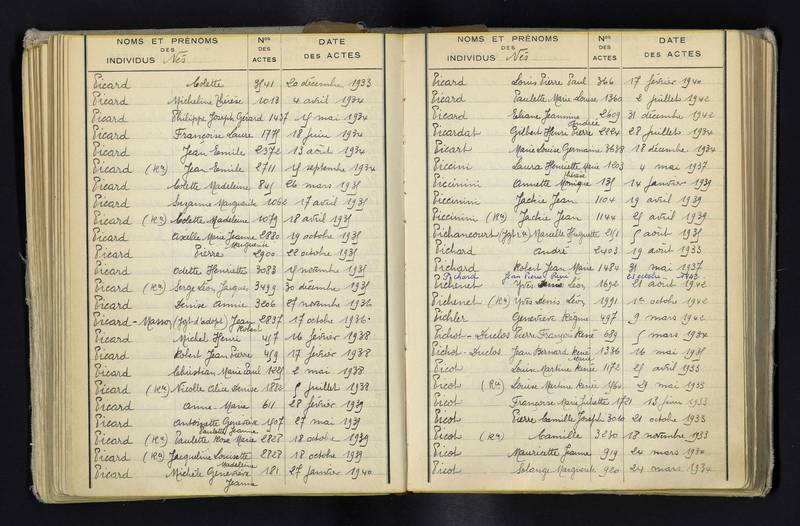 NOMS ET PRÉNOMS DES INDIVIDUS Nés
Nos DES ACTES
DATE DES ACTES
Picard Colette 3541 20 décembre 1933
Picard Micheline Thérèse 1013 4 avril 1934
Picard Philippe Joseph Gérard 1437 15 mai 1934
Picard Françoise Laure 1775 18 juin 1934
Picard Jean Emile 2372 13 août 1934
Picard (Ron) Jean Emile 2711 15 septembre 1934
Picard Colette Madeleine 845 26 mars 1935
Picard Suzanne Marguerite 1062 17 avril 1935
Picard (Ron) Colette Madeleine 1079 18 avril 1935
Picard Axelle Marie Jeanne Marguerite 2880 19 octobre 1935
Picard Pierre 2900 22 octobre 1935
Picard Odette Henriette 3083 15 novembre 1935
Picard (Ron) Serge Léon Jacques 3499 30 décembre 1935
Picard Denise Annie 3206 27 novembre 1936
Picard-Masson (Jgt d'adopt) Jean Robert 2837 17 octobre 1936
Picard Michel Henri 457 16 février 1938
Picard Robert Jean Pierre 459 17 février 1938
Picard Christian Marie Paul 1225 2 mai 1938
Picard (Ron) Nicolle Alice Denise 1882 5 juillet 1938
Picard Anne Marie 611 28 février 1939
Picard Antoinette Geneviève 1507 27 mai 1939
Picard (Ron) Paulette Jeanne Paulette Rose Marie 2828 18 octobre 1939
Picard (Ron) Jacqueline Louisette 2828 18 octobre 1939
Picard Michèle Geneviève Madeleine Jeanne 181 27 janvier 1940
NOMS ET PRÉNOMS DES INDIVIDUS Nés
Nos DES ACTES
DATE DES ACTES
Picard Louis Pierre Paul 366 17 février 1940
Picard Paulette Marie Louise 1360 2 juillet 1942
Picard Eliane Jeannine 2609 31 décembre 1942
Picardat Gilbert Henri Pierre Andrée 2124 28 juillet 1934
Picart Marie Louise Germaine 3638 18 décembre 1934
Piccini Laura Henriette Marie 1203 4 mai 1937
Piccinini Annette Monique Thérèse 135 14 janvier 1939
Piccinini Jackie Jean 1104 19 avril 1939
Piccinini (Ron) Jackie Jean 1144 25 avril 1939
Pichancourt Marcelle Huguette 251 5 août 1935
Pichard André 2403 19 août 1933
Pichard Robert Jean Marie 1480 31 mai 1937
Pichard Jean Pierre René 23 octobre
Pichenet Yves Denis Léon 1692 21 août 1942
Pichenet (Ron) Yves Denis Léon 1991 1er octobre 1942
Pichler Geneviève Régine 497 9 mars 1942
Pichot-Duclos Pierre François René 689 5 mars 1934
Pichot-Duclos Jean Bernard René Marie 1336 16 mai 1935
Picot Louise Martine Renée 1172 25 avril 1933
Picot (Ron) Louise Martine Renée 29 mai 1933
Picot Françoise Marie Juliette 1721 13 juin 1933
Picot Pierre Camille Joseph 3010 21 octobre 1933
Picot (Ron) Camille 3230 18 novembre 1933
Picot Mauricette Jeanne 919 24 mars 1934
Picot Solange Marguerite 920 24 mars 1934